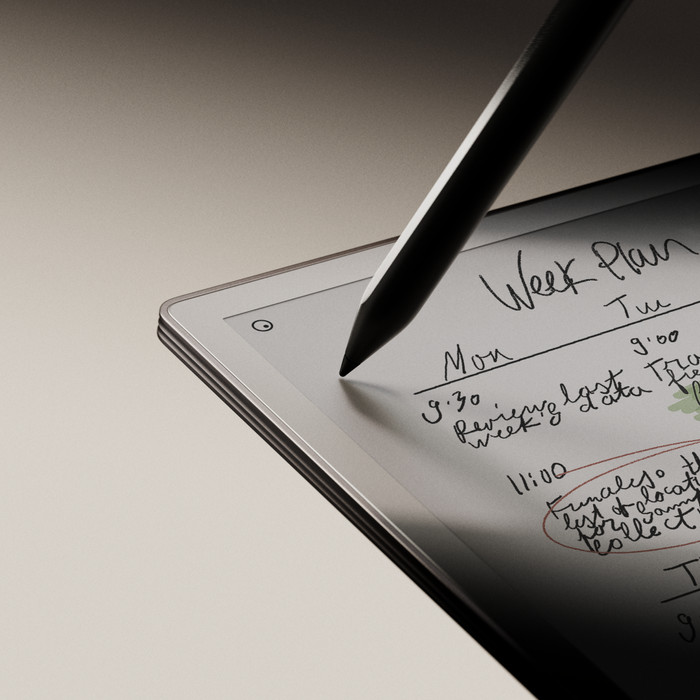 Week Plan
Mon
Tue
9:30
Review last
week's data
9:00
11:00
Finalise th
list & locati
for sam
collect